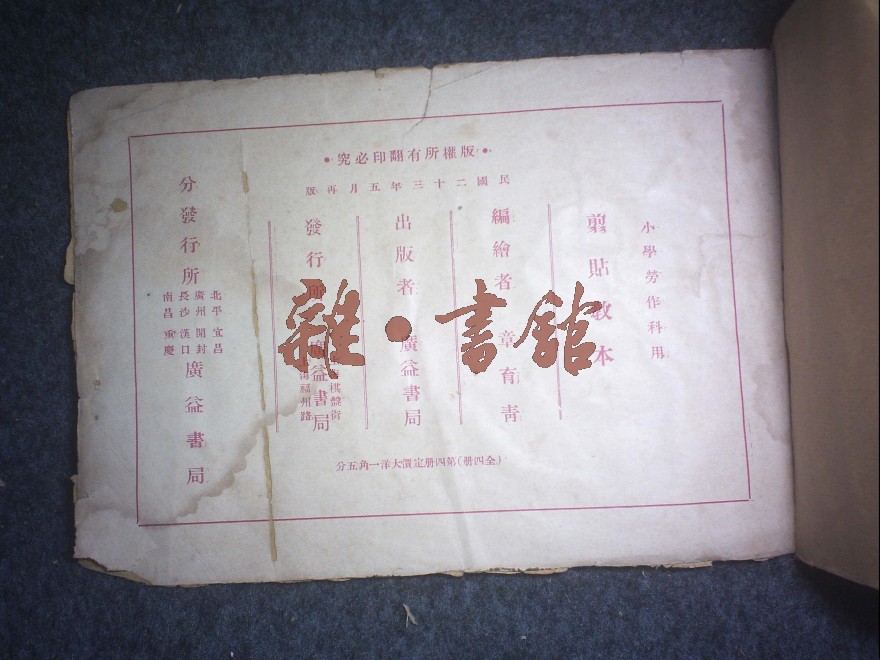 •版權所有翻印必究•
民國二十三年五月再版
小學勞作科用
剪貼教本
編繪者 章育青
出版者 廣益書局
發行所 廣益書局
棋盤街
福州路
分發行所
北平 宜昌
廣州 開封
長沙 漢口
南昌 重慶
廣益書局
(全四册)第四册定價大洋一角五分
雜•書館